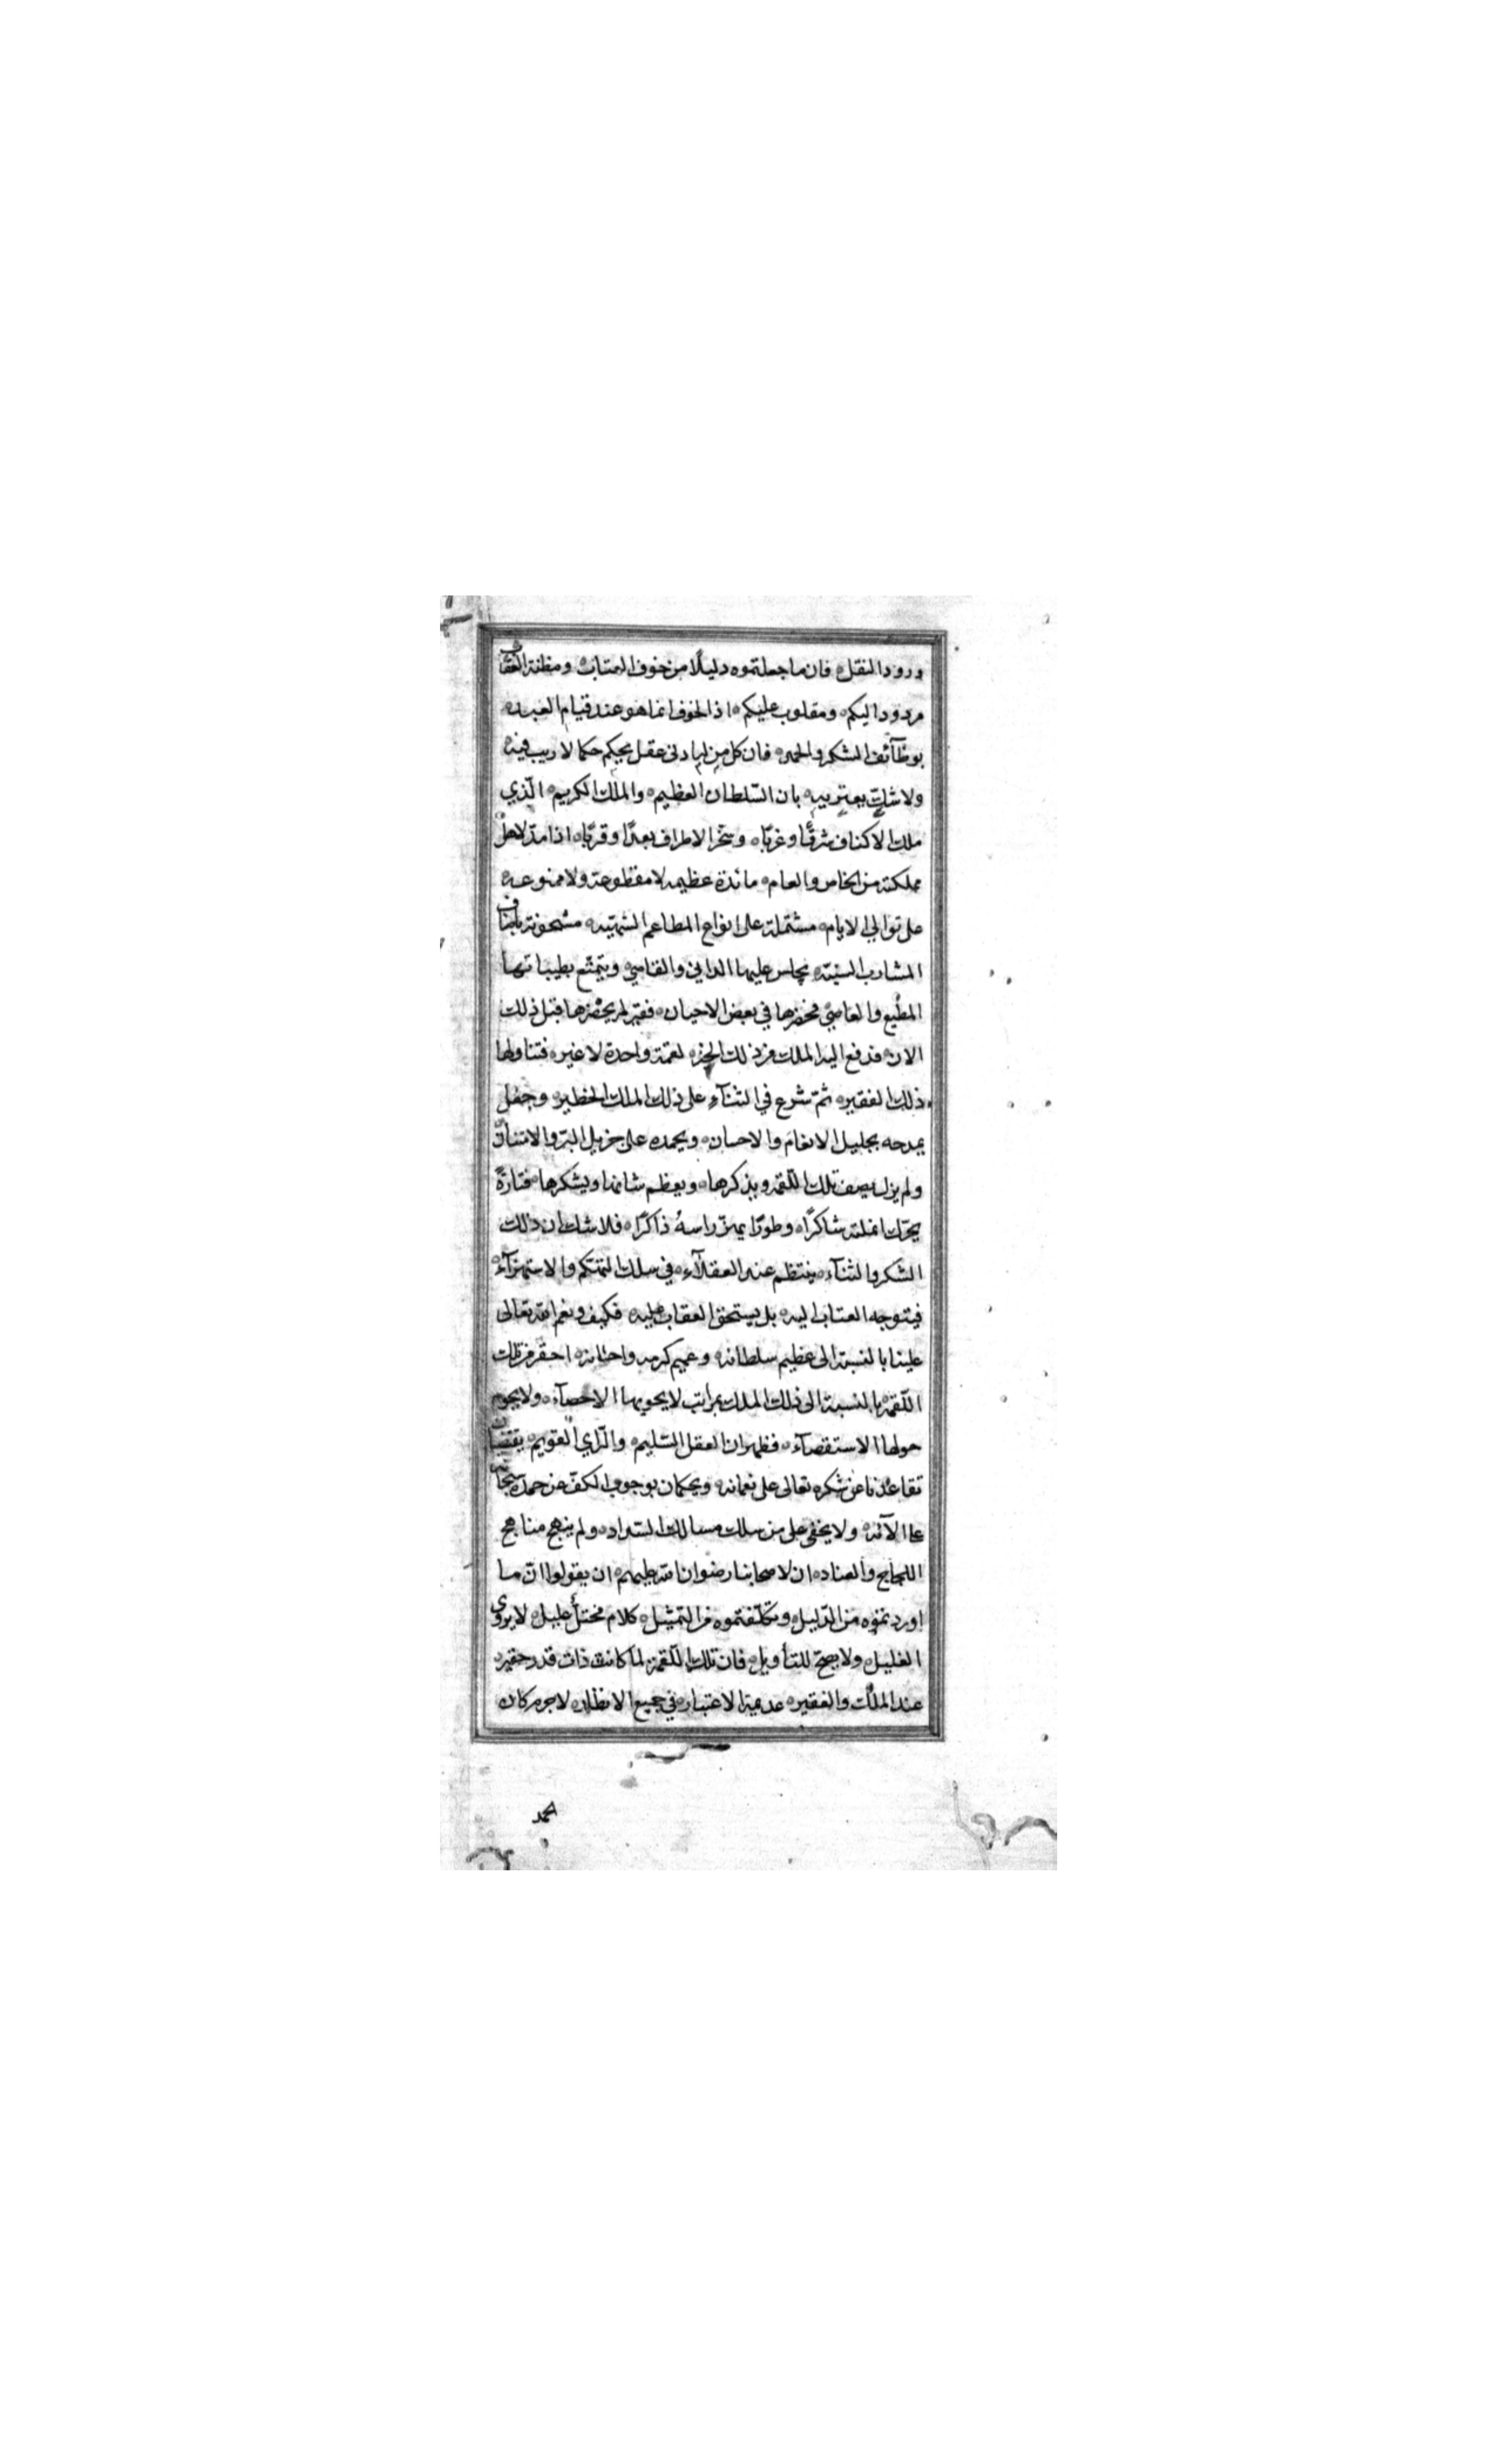 ورود النقل ه فان ما جعلتموه دليلًا من خوف العتاب ه ومظنة العقاب
مردود اليكم ه ومقلوب عليكم ه اذ الخوف انما هو عند قيام العبد ه
بوظآئف الشكر والحمد ه فان كل من له ادنى عقل يحكم حكما لا ريب فيه ه
ولا شك يعتريه ه بان السّلطان العظيم ه والملك الكريم ه الّذي
ملك الاكناف شرقًا وغربًا ه وسخّر الاطراف بعدًا وقربًا ه اذا مدّ لاهل
مملكته من الخاص والعام ه مائدة عظيمه لا مقطوعة ولا ممنوعه ه
على توالي الايام ه مشتملة على انواع المطاعم الشهيّه ه مشحونة باصناف
المشارب السنيّه ه يجلس عليها الداني والقاصي ه ويتمتّع بطيباتها
المطيع والعاصي ه فحضرها في بعض الاحيان ه فقير لم يحضرها قبل ذلك
الان ه فدفع اليه الملك من ذلك الخبز ه لقمة واحدة لا غير ه فتناولها
ذلك الفقير ه ثمّ شرع في الثنآء على ذلك الملك الخطير ه وجعل
يمدحه بجليل الانعام والاحسان ه ويحمده على جزيل البرّ والامتنان
ولم يزل يصف تلك اللّقمه ويذكرها ه ويعظم شانها ويشكرها ه فتارةً
يحرّك انملته شاكرًا ه وطورًا يهزّ راسهُ ذاكرًا ه فلا شك ان ذلك
الشكر والثنآء ه ينتظم عند العقلآء ه في سلك التهكم والاستهزآء ه
فيتوجه العتاب اليه ه بل يستحق العقاب عليه ه فكيف ونعم الله تعالى
علينا بالنسبة الى عظيم سلطانه ه وعميم كرمه واحسانه ه احقر من تلك
اللّقمة بالنسبة الى ذلك الملك بمراتب لا يحويها الاحصآء ه ولا يحوم
حولها الاستقصآء ه فظهر ان العقل السّليم ه والرّاي القويم ه يقتضيان
تقاعدنا عن شكره تعالى على نعمائه ه ويحكمان بوجوب الكفّ عن حمده سبحانه
على آلائه ه ولا يخفى على من سلك مسالك السّداد ه ولم ينهج مناهج
اللجاج والعناد ه ان لاصحابنا رضوان الله عليهم ه ان يقولوا انّ ما
اوردتموه من الدّليل ه وتكلّفتموه من التمثيل ه كلام مختلّ عليل ه لا يروى
الغليل ه ولا يصحّ للتأويل ه فان تلك اللّقمة لما كانت ذات قدر حقير ه
عند الملك والفقير ه عديمة الاعتبار ه في جميع الانظار ه لا جرم كان
الحمد